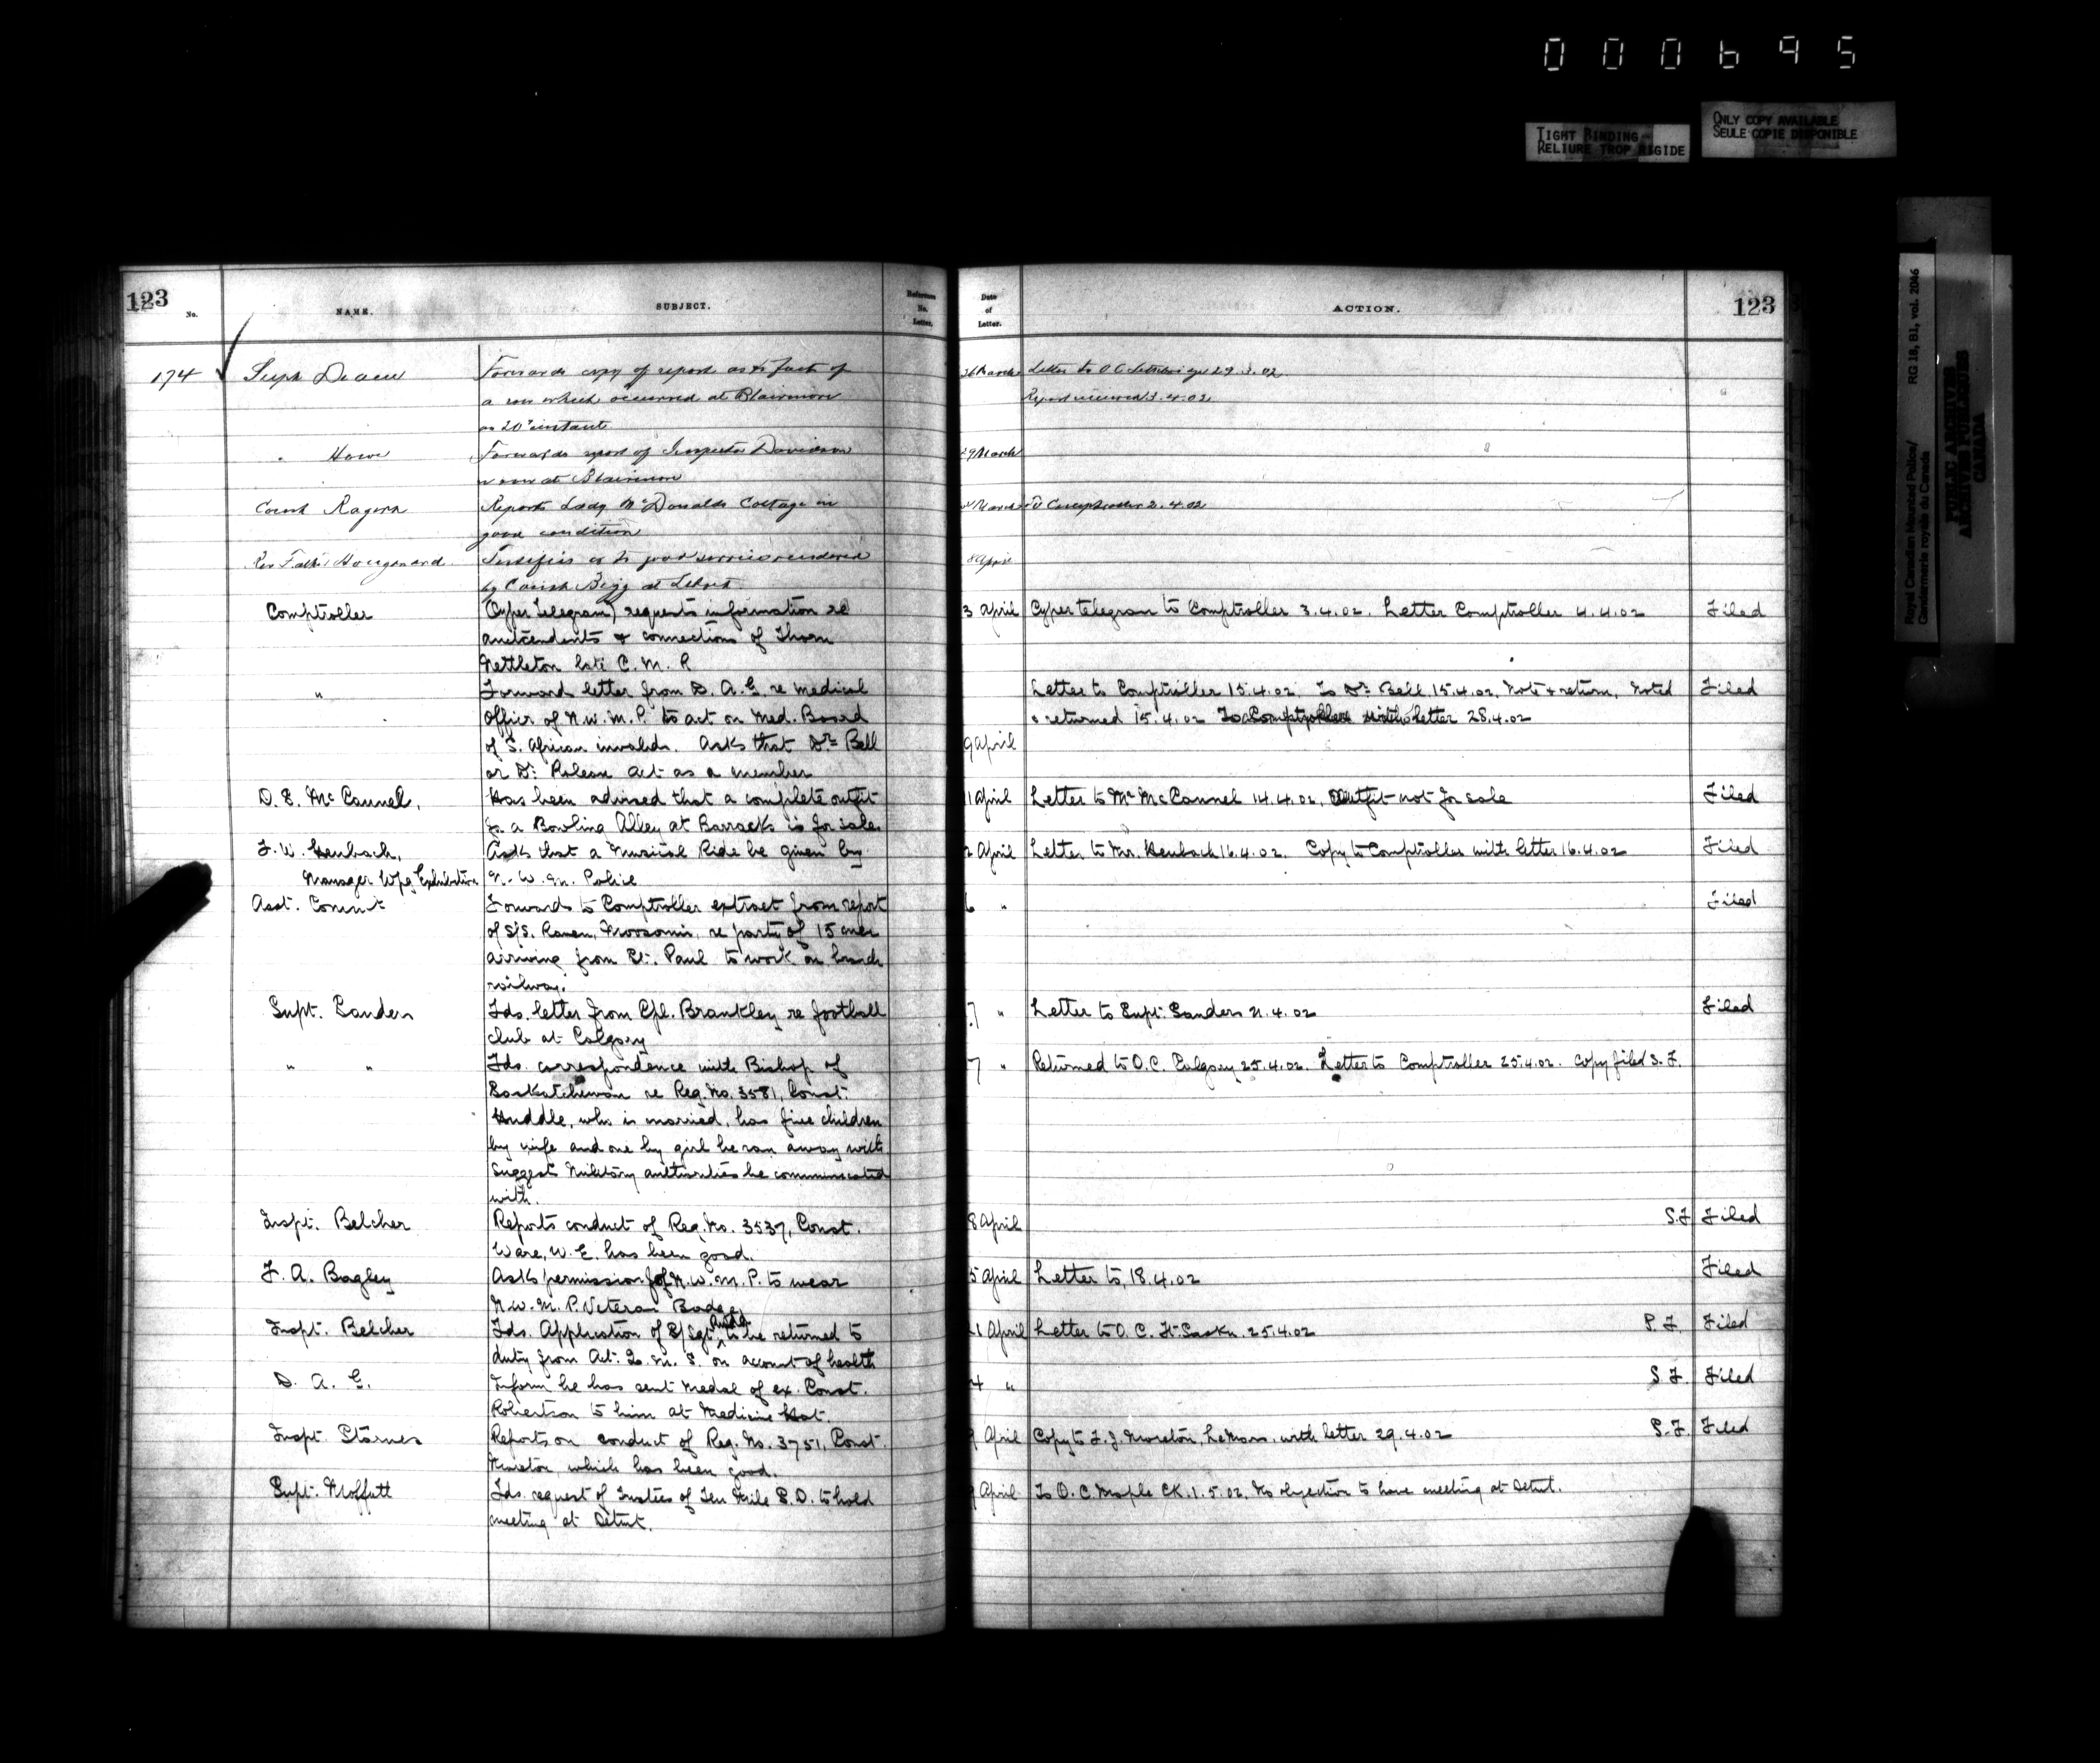 000695
TIGHT BINDING
RELIURE TROP RIGIDE
ONLY COPY AVAILABLE
SEULE COPIE DISPONIBLE
Royal Canadian Mounted Police/
Gendarmerie royale du Canada
RG 18, B1, vol. 2046
PUBLIC ARCHIVES
ARCHIVES PUBLIQUES
CANADA
123
No.
NAME.
SUBJECT.
Reference
No.
Letter.
Date
of
Letter.
ACTION.
123
174 Supt Deane Forwards copy of report as to fact of March Letter to O C Lethbridge 29.3.02
a row which occurred at Blairmore Report received 3.4.02
on 20th instant
" Howe Forwards report of Inspector Davidson 29 March
row at Blairmore
Const Reports Lady McDonalds Cottage in March To Comptroller 2.4.02
good condition
Rev Father Hougonard Testifies as to good service rendered 8 April
by Const Begg at Lebret
Comptroller (Cyper Telegram) requests information re 3 April Cyper telegram to Comptroller 3.4.02. Letter Comptroller 4.4.02 Filed
antecendents & connections of Thom
Nettleton late C. M. R
" Forward letter from D. A. G. re medical Letter to Comptroller 15.4.02. To Dr. Bell 15.4.02, Note & return, Noted Filed
Officer of N.W.M.P. to act on Med. Board & returned 15.4.02 To Comptroller with letter 28.4.02
of S. African invalids. Asks that Dr. Bell 9 April
or Dr. Roleau act as a member
D. E. McCannel, Has been advised that a complete outfit 11 April Letter to Mr McCannel 14.4.02, Outfit not for sale Filed
for a Bowling Alley at Barracks is for sale.
F. W. Heubach, Asks that a Musical Ride be given by 2 April Letter to Mr. Heubach 16.4.02. Copy to Comptroller with letter 16.4.02 Filed
Manager Wpg Exhibition N. W. M. Police
Asst. Commr Forwards to Comptroller extract from report 6 " Filed
of S/S. Raven, Moosomin, re party of 15 men
arriving from St. Paul to work on branch
railway.
Supt. Sanders Fds. letter from Cpl. Brankley re football 7 " Letter to Supt. Sanders 21.4.02 Filed
club at Calgary
" " Fds. correspondence with Bishop of 7 " Returned to O.C. Calgary 25.4.02. Letter to Comptroller 25.4.02. Copy filed S.F.
Saskatchewan re Reg. No. 3581, Const.
Huddle, who is married, has five children
by wife and one by girl he ran away with
Suggest Military authorities be communicated
with.
Inspt. Belcher Reports conduct of Reg. No. 3537, Const. 8 April S.F Filed
Ware, W. E. has been good.
F. A. Bagley Asks permission of N.W.M.P. to wear 5 April Letter to, 18.4.02 Filed
N.W.M.P. Veteran Badge
Inspt. Belcher Fds. Application of S/Sgt. to be returned to 21 April Letter to O.C. Ft. Saskn. 25.4.02 S.F. Filed
duty from Act. Q.M.S. on account of health
D. A. G. Inform he has sent medal of ex. Const. 4 " S.F. Filed
Robertson to him at Medicine Hat.
Inspt. Starnes Reports on conduct of Reg. No. 3751, Const. 9 April Copy to F. J. Moreton, LeMars, with letter 29.4.02 S.F. Filed
Moreton, which has been good.
Supt. Moffatt Fds. request of Trustees of Ten Mile S.D. to hold 9 April To O.C. Maple CK. 1.5.02. No objection to have meeting at Detmt.
meeting at Detmt.